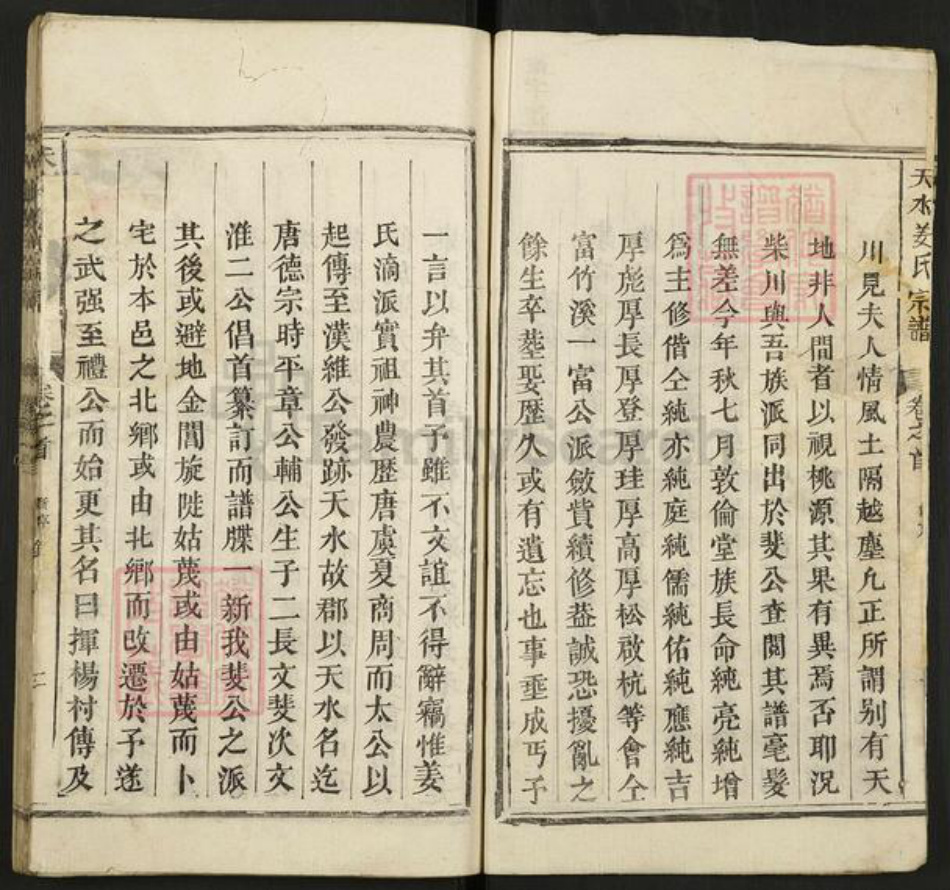 天水姜氏宗譜
卷之首
川見夫人情風土隔越塵凢正所謂别有天
地非人間者以視桃源其果有異焉否耶況
柴川與吾族派同出於斐公查閲其譜毫髮
無差今年秋七月敦倫堂族長命純亮純增
爲主修偕仝純亦純庭純儒純佑純應純吉
厚彪厚長厚登厚珪厚高厚松啟杭等會仝
富竹溪一富公派斂貲續修益誠恐擾亂之
餘生卒塟娶歷久或有遺忘也事垂成丐予
一言以弁其首予雖不文誼不得辭竊惟姜
氏滴派實祖神農歷唐虞夏商周而太公以
起傳至漢維公發跡天水故郡以天水名迄
唐德宗時平章公輔公生子二長文斐次文
淮二公倡首纂訂而譜牒一新我斐公之派
其後或避地金閶旋陡姑蔑或由姑蔑而卜
宅於本邑之北鄉或由北鄉而改遷於予遂
之武强至禮公而始更其名曰揮楊村傳及
卷之首
二